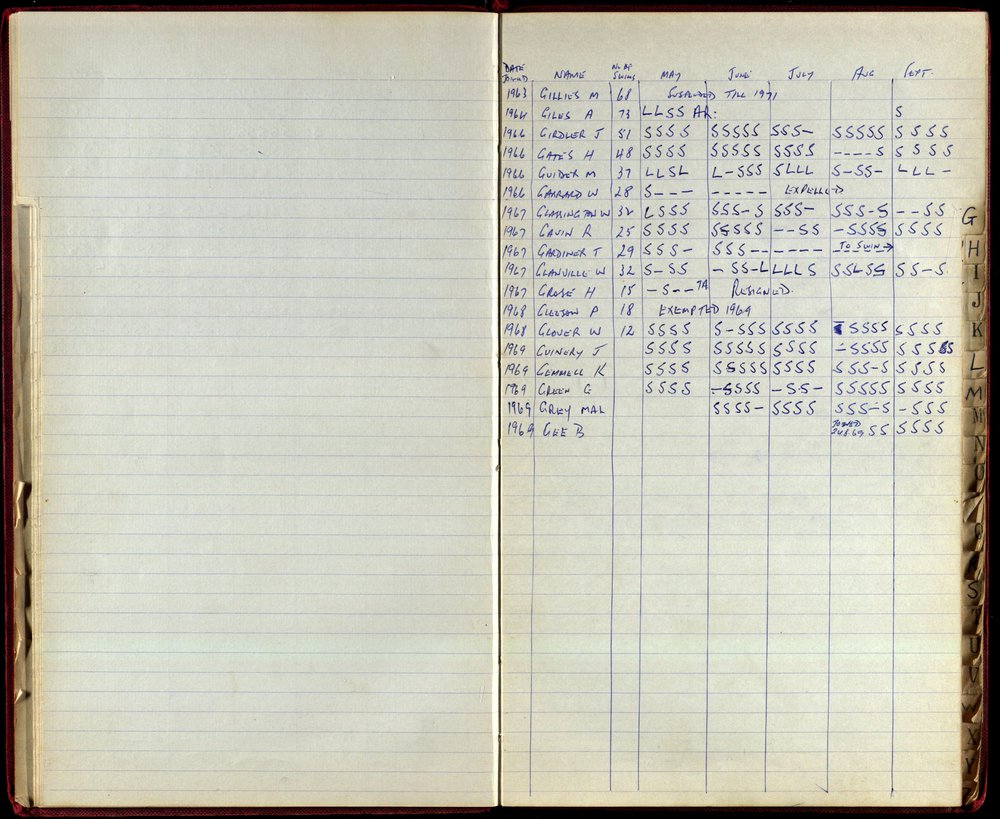 DATE JOINED NAME No OF SWIMS MAY JUNE JULY AUG SEPT.
1963 GILLIES M 68 SUSPENDED TILL 1971
1964 GILES A 73 LLSS AR: S
1966 GIRDLER J 51 SSSS SSSSS SSS- SSSSS SSSS
1966 GATES H 48 SSSS SSSSS SSSS ----S SSSS
1966 GUIDER M 37 LLSL L-SSS SLLL S-SS- LLL-
1966 GARRARD W 28 S--- ----- EXPELLED
1967 GLASSINGTON W 32 LSSS SSS-S SSS- SSS-S --SS
1967 GAVIN R 25 SSSS SSSSS --SS -SSSS SSSS
1967 GARDINER T 29 SSS- SSS-- ---- ----- TO SWIM →
1967 GLANVILLE W 32 S-SS -SS-L LLLS SSLSS SS-S
1967 GROSE H 15 -S-- 7A RESIGNED.
1968 GLEESON P 18 EXEMPTED 1969
1968 GLOVER W 12 SSSS S-SSS SSSS SSSS SSSS
1969 GUINERY J SSSS SSSSS SSSS -SSSS SSSSS
1969 GEMMELL K SSSS SSSSS SSSS SSS-S SSSS
1969 GREEN G SSSS -SSSS -SS- SSSSS SSSS
1969 GREY MAL SSSS- SSSS SSS-S -SSS
1969 GEE B JOINED 24.8.69 SS SSSS
G
H
I
J
K
L
M
N
O
S
T
U
V
W
X
Y